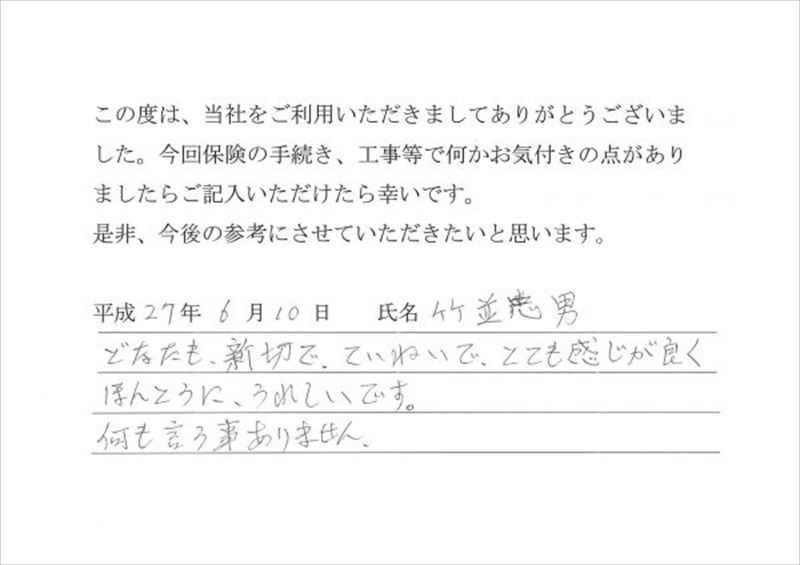 この度は、当社をご利用いただきましてありがとうございま
した。今回保険の手続き、工事等で何かお気付きの点があり
ましたらご記入いただけたら幸いです。
是非、今後の参考にさせていただきたいと思います。
平成27年 6月10日 氏名 竹並忠男
どなたも、新切で、ていねいで、とても感じが良く
ほんとうに、うれしいです。
何も言う事ありません、